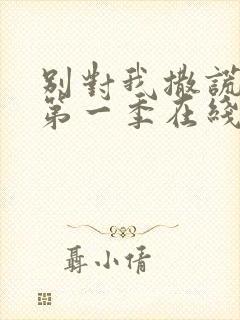 別對我撒謊
第一季在綫
聶小倩